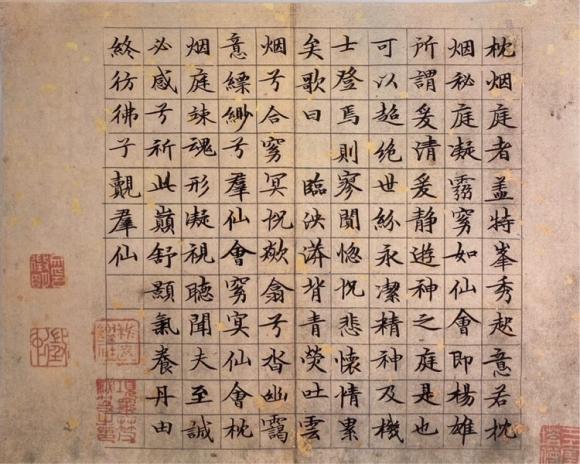 枕烟庭者盖特峯秀起意若枕
烟秘庭凝靄窅如仙會即楊雄
所謂爰清爰静遊神之庭是也
可以超绝世紛永潔精神及機
士登焉則寥閴惚怳悲懷情累
矣歌曰 臨泱漭背青熒吐雲
烟兮合窅冥怳欻翕兮沓幽靄
意縹緲兮羣仙會窅冥仙會枕
烟庭竦魂形凝視聽聞夫至誠
必感兮祈此巔舒顥氣養丹由
終彷彿子覿羣仙